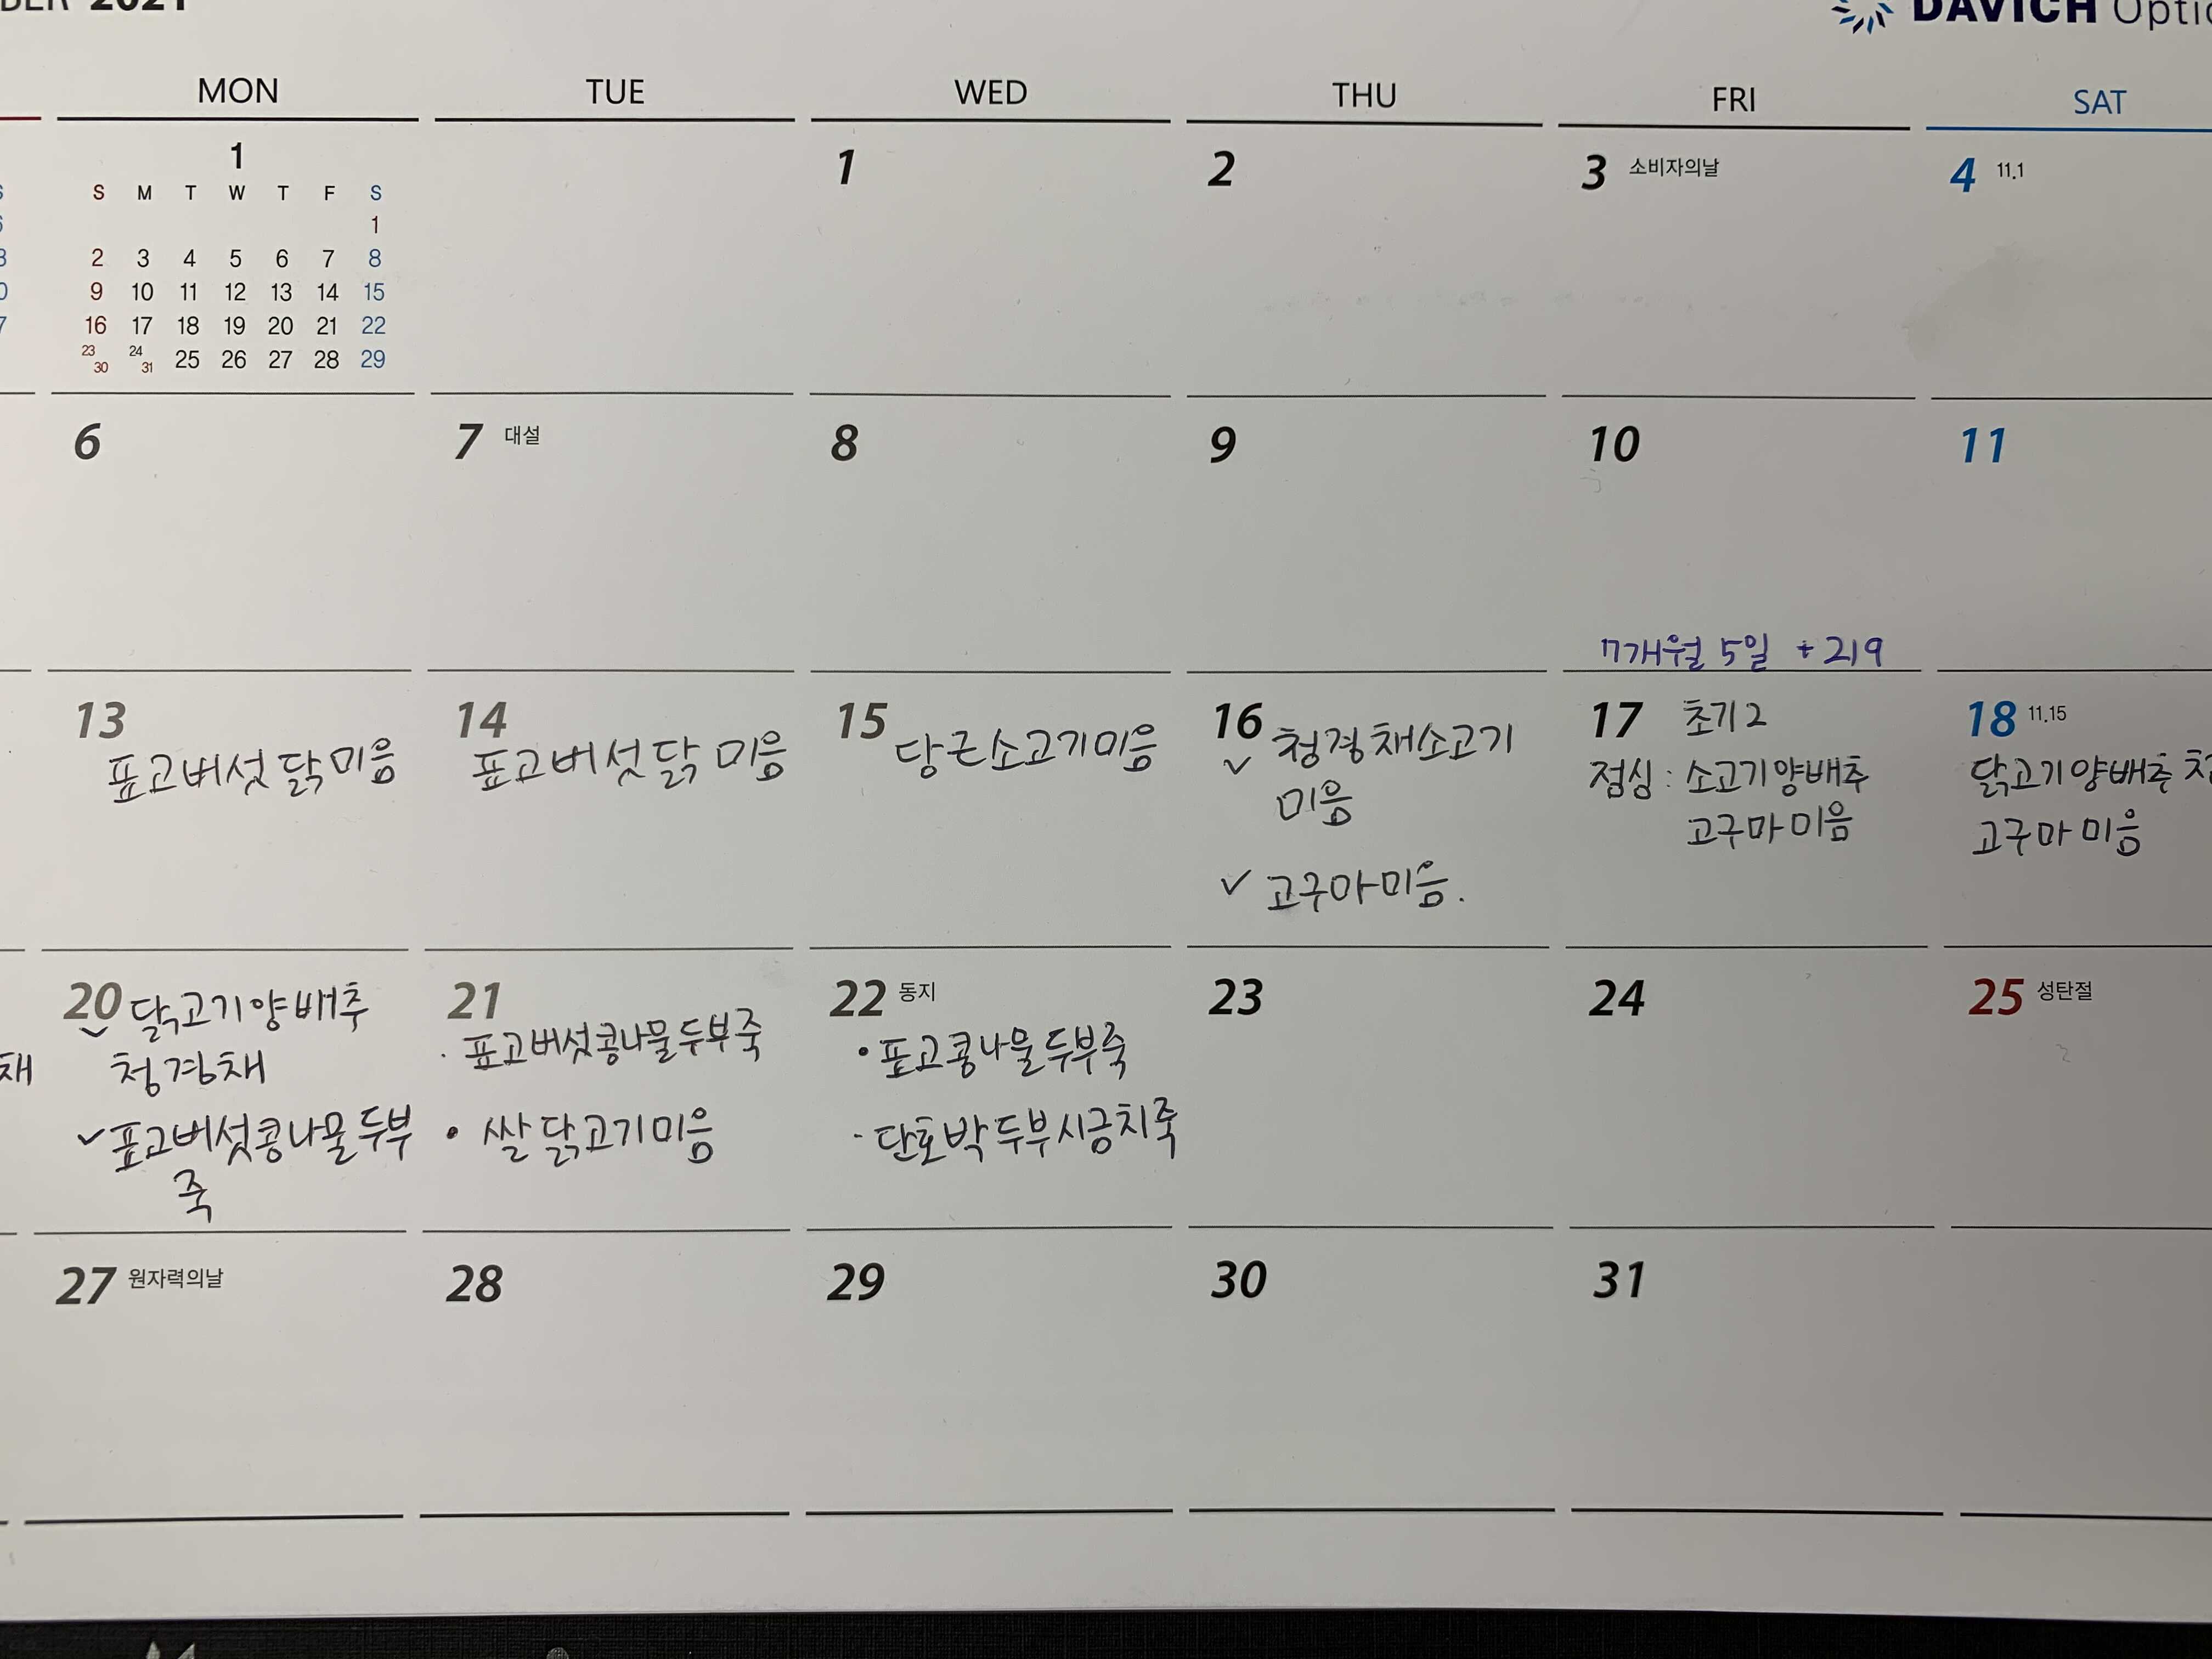 2021
DAVICH Optic
MON TUE WED THU FRI SAT
1
S M T W T F S
1
2 3 4 5 6 7 8
9 10 11 12 13 14 15
16 17 18 19 20 21 22
23 24 25 26 27 28 29
30 31
1
2
3 소비자의날
4 11.1
6
7 대설
8
9
10
11
7개월 5일 +219
13
표고버섯닭미음
14
표고버섯닭 미음
15
당근소고기미음
16 청경채소고기
✓ 미음
✓ 고구마미음.
17 초기2
점심: 소고기양배추
고구마미음
18 11.15
닭고기양배추
고구마미음
채
20 닭고기양배추
청경채
✓표고버섯콩나물두부
죽
21
· 표고버섯콩나물두부죽
• 쌀닭고기미음
22 동지
• 표고콩나물두부죽
- 단호박두부시금치죽
23
24
25 성탄절
27 원자력의날
28
29
30
31